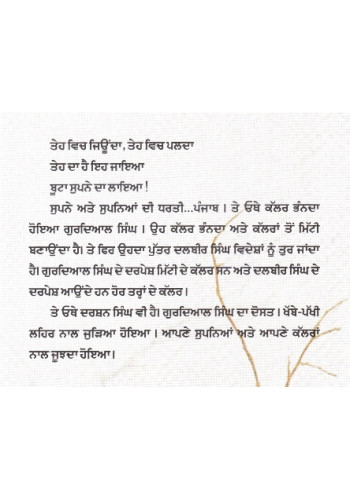 ਤੇਹ ਵਿਚ ਜਿਊਂਦਾ, ਤੇਹ ਵਿਚ ਪਲਦਾ
ਤੇਹ ਦਾ ਹੈ ਇਹ ਜਾਇਆ
ਬੂਟਾ ਸੁਪਨੇ ਦਾ ਲਾਇਆ !
ਸੁਪਨੇ ਅਤੇ ਸੁਪਨਿਆਂ ਦੀ ਧਰਤੀ...ਪੰਜਾਬ । ਤੇ ਓਥੇ ਕੱਲਰ ਭੰਨਦਾ
ਹੋਇਆ ਗੁਰਦਿਆਲ ਸਿੰਘ । ਉਹ ਕੱਲਰ ਭੰਨਦਾ ਅਤੇ ਕੱਲਰਾਂ ਤੋਂ ਮਿੱਟੀ
ਬਣਾਉਂਦਾ ਹੈ। ਤੇ ਫਿਰ ਉਹਦਾ ਪੁੱਤਰ ਦਲਬੀਰ ਸਿੰਘ ਵਿਦੇਸ਼ਾਂ ਨੂੰ ਤੁਰ ਜਾਂਦਾ
ਹੈ। ਗੁਰਦਿਆਲ ਸਿੰਘ ਦੇ ਦਰਪੇਸ਼ ਮਿੱਟੀ ਦੇ ਕੱਲਰ ਸਨ ਅਤੇ ਦਲਬੀਰ ਸਿੰਘ ਦੇ
ਦਰਪੇਸ਼ ਆਉਂਦੇ ਹਨ ਹੋਰ ਤਰ੍ਹਾਂ ਦੇ ਕੱਲਰ ।
ਤੇ ਓਥੇ ਦਰਸ਼ਨ ਸਿੰਘ ਵੀ ਹੈ। ਗੁਰਦਿਆਲ ਸਿੰਘ ਦਾ ਦੋਸਤ । ਖੱਬੇ-ਪੱਖੀ
ਲਹਿਰ ਨਾਲ ਜੁੜਿਆ ਹੋਇਆ । ਆਪਣੇ ਸੁਪਨਿਆਂ ਅਤੇ ਆਪਣੇ ਕੱਲਰਾਂ
ਨਾਲ ਜੂਝਦਾ ਹੋਇਆ।